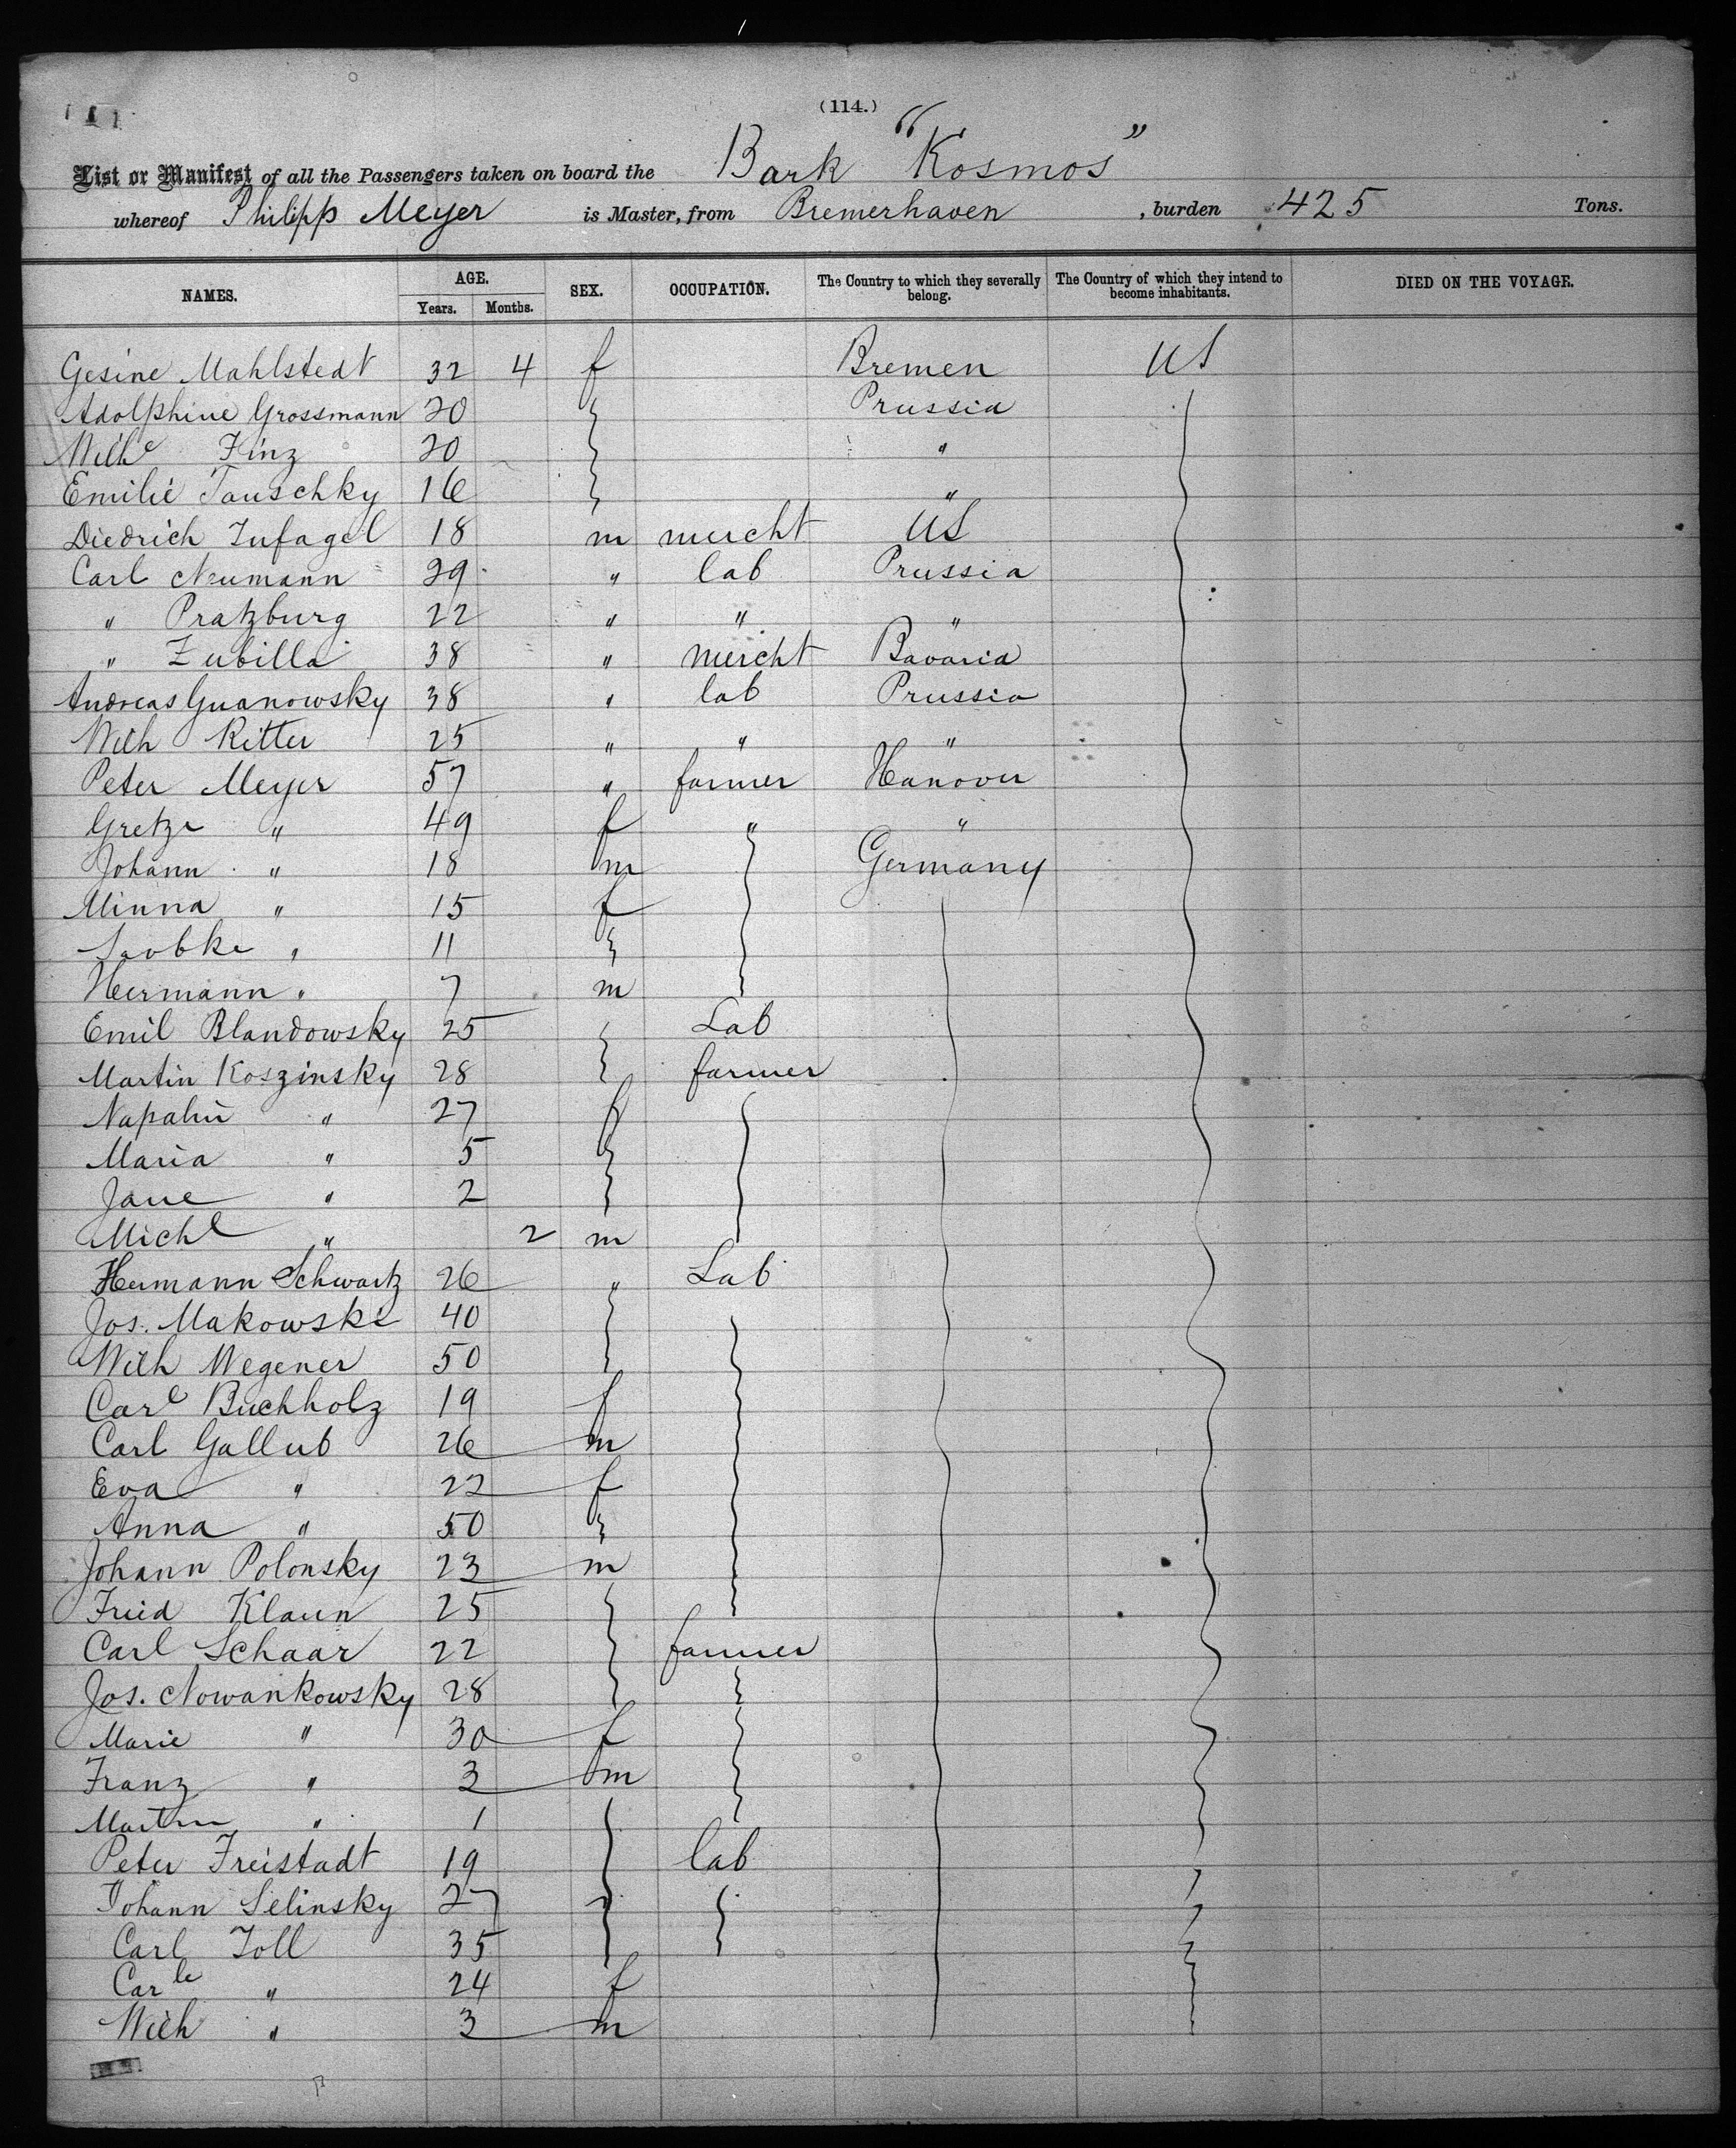 (114.)
List or Manifest of all the Passengers taken on board the Bark "Kosmos"
whereof Philipp Meyer is Master, from Bremerhaven, burden 425 Tons.
NAMES. AGE. SEX. OCCUPATION. The Country to which they severally belong. The Country of which they intend to become inhabitants. DIED ON THE VOYAGE.
Years. Months.
Gesine Mahlstedt 32 4 f Bremen US
Adolphine Grossmann 20 Prussia
Wilhe Finz 20 "
Emilie Tauschky 16 "
Diedrich Zufagel 18 m mercht US
Carl Neumann 29 " lab Prussia
" Pratzburg 22 " " "
" Zubilla 38 " mercht Bavaria
Andreas Guanowsky 38 " lab Prussia
Wilh Ritter 25 " " "
Peter Meyer 57 " farmer Hanover
Gretze " 49 f " "
Johann " 18 m Germany
Minna " 15 f
" 11
Hermann " 7 m
Emil Blandowsky 25 Lab
Martin Koszinsky 28 farmer
" 27 f
Maria " 5
Jane " 2
Michl " 2 m
Hermann Schwartz 26 " Lab
Jos. Makowski 40
Wilh Wegener 50
Carl Buchholz 19 f
Carl Gallub 26 m
Eva " 22 f
Anna " 50
Johann Polonsky 23 m
Fried Klaun 25
Carl Schaar 22 farmer
Jos. Nowankowsky 28
Marie " 30 f
Franz " 3 m
Martin " 1
Peter Freistadt 19 lab
Johann Selinsky 27
Carl Zoll 35
Carle " 24 f
Wilh " 3 m